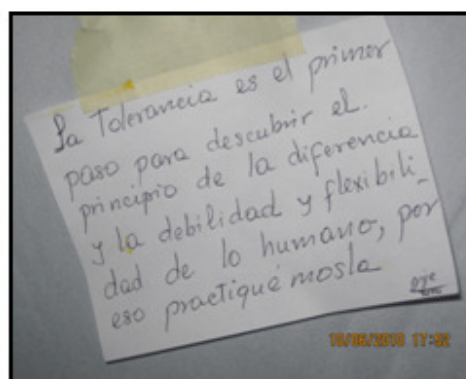 La Tolerancia es el primer
paso para descubrir el.
principio de la diferencia
y la debilidad y flexibili_
dad de lo humano, por
eso practiquémosla